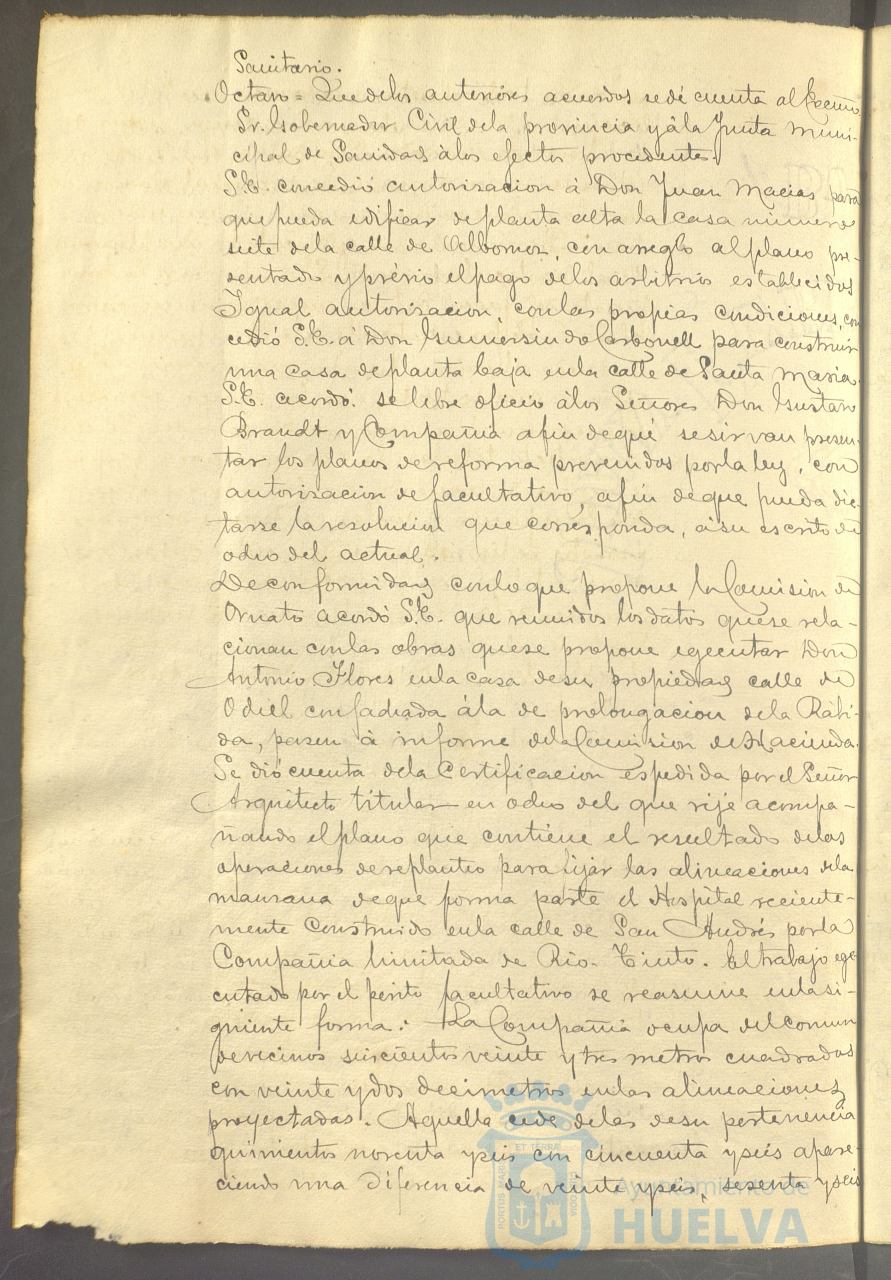 Sanitario.
Octavo = Que de los anteriores acuerdos se dé cuenta al Excmo
Sr. Gobernador Civil de la provincia y á la Junta muni-
cipal de Sanidad á los efectos procedentes.
S.E. concedió autorizacion á Don Juan Macias para
que pueda edificar de planta alta la casa numero
siete de la calle de Albornoz, con arreglo al plano pre-
sentado y prévio el pago de los arbitrios establecidos
Igual autorizacion, con las propias condiciones, con
cedió S.E. á Don Gumersindo Carbonell para construir
una casa de planta baja en la calle de Santa Maria.
S.E. acordó: se libre oficio á los Señores Don Gustavo
Brandt y Compañia a fin de qué se sirvan presen-
tar los planos de reforma prevenidos por la ley, con
autorizacion de facultativo, a fin de que pueda dic-
tarse la resolucion que corresponda, á su escrito de
ocho del actual.
De conformidad con lo que propone la Comision de
Ornato acordó S.E. que reunidos los datos que se rela-
cionan con las obras que se propone egecutar Don
Antonio Flores en la casa de su propiedad calle de
Odiel con fachada á la de prolongacion de la Rabi-
da, pasen á informe de la Comision de Hacienda.
Se dió cuenta de la Certificacion espedida por el Señor
Arquitecto titular en ocho del que rije acompa-
ñando el plano que contiene el resultado de las
operaciones de replanteo para fijar las alineaciones de la
manzana de que forma parte el Hospital reciente-
mente construido en la calle de San Andrés por la
Compañia limitada de Rio-Tinto. El trabajo ege-
cutado por el perito facultativo se reasume en la si-
guiente forma: La Compañia ocupa del comun
de vecinos seiscientos veinte y tres metros cuadrados
con veinte y dos decimetros en las alineaciones
proyectadas. Aquella cede de las de su pertenencia
quinientos noventa y seis con cincuenta y seis apare-
ciendo una diferencia de veinte y seis, sesenta y seis
ET TERRÆ
PORTUS MARIS
CUSTODIA
Ayuntamiento de
HUELVA